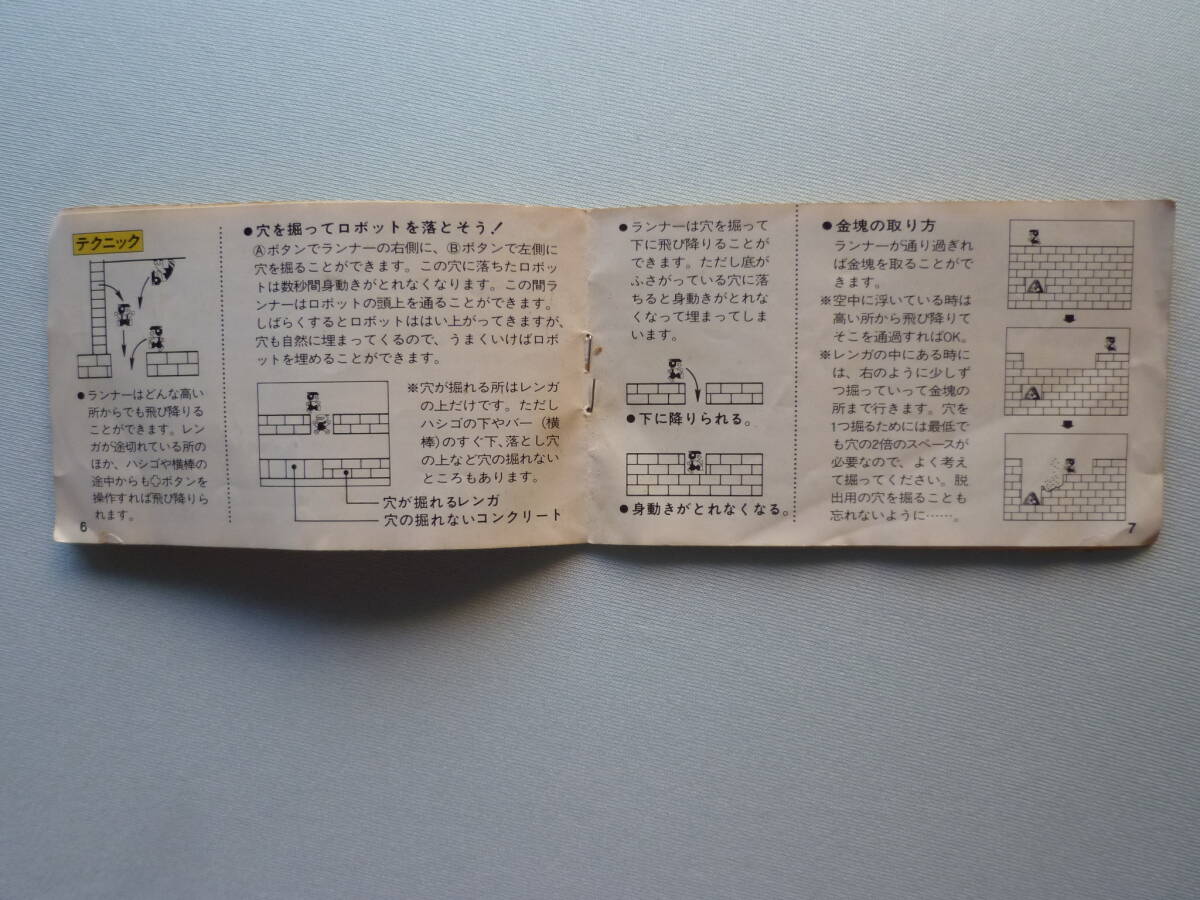 テクニック
●ランナーはどんな高い
所からでも飛び降りる
ことができます。レン
ガが途切れている所の
ほか、ハシゴや横棒の
途中からも✚ボタンを
操作すれば飛び降りら
れます。
6
●穴を掘ってロボットを落とそう!
Ⓐボタンでランナーの右側に、Ⓑボタンで左側に
穴を掘ることができます。この穴に落ちたロボッ
トは数秒間身動きがとれなくなります。この間ラ
ンナーはロボットの頭上を通ることができます。
しばらくするとロボットははい上がってきますが、
穴も自然に埋まってくるので、うまくいけばロボ
ットを埋めることができます。
※穴が掘れる所はレンガ
の上だけです。ただし
ハシゴの下やバー(横
棒)のすぐ下、落とし穴
の上など穴の掘れない
ところもあります。
穴が掘れるレンガ
穴の掘れないコンクリート
●ランナーは穴を掘って
下に飛び降りることが
できます。ただし底が
ふさがっている穴に落
ちると身動きがとれな
くなって埋まってしま
います。
●下に降りられる。
●身動きがとれなくなる。
●金塊の取り方
ランナーが通り過ぎれ
ば金塊を取ることがで
きます。
※空中に浮いている時は
高い所から飛び降りて
そこを通過すればOK。
※レンガの中にある時に
は、右のように少しず
つ掘っていって金塊の
所まで行きます。穴を
1つ掘るためには最低で
も穴の2倍のスペースが
必要なので、よく考え
て掘ってください。脱
出用の穴を掘ることも
忘れないように……。
7